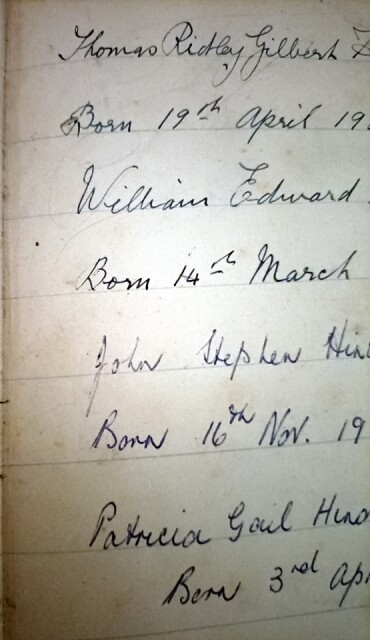 Thomas Ridley Gilbert
Born 19th April 19
William Edward
Born 14th March
John Stephen Hind
Born 16th Nov. 19
Patricia Gail Hind
Born 3rd Apr